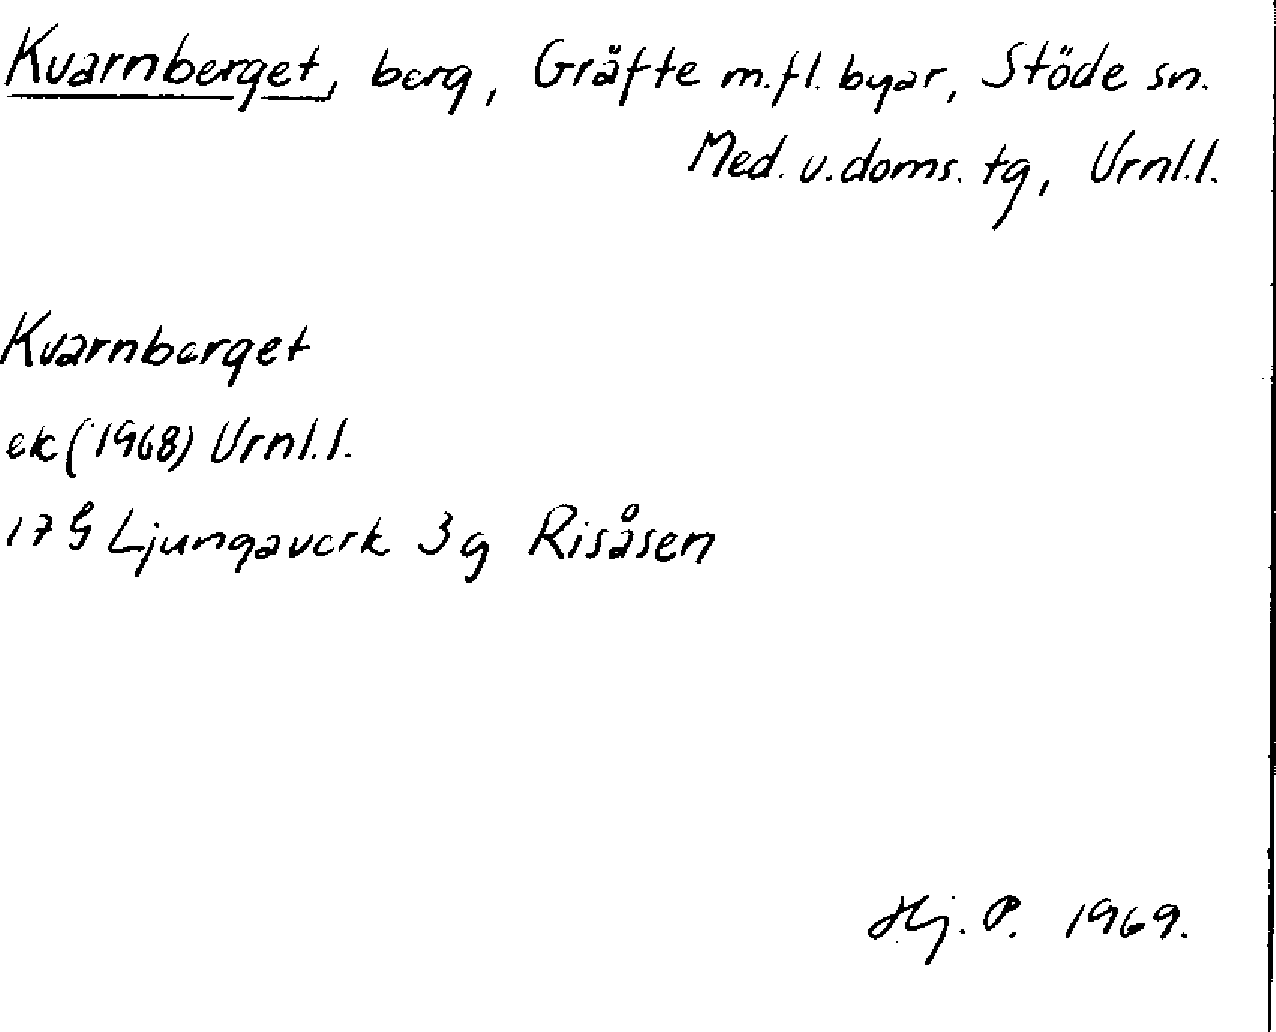 Kvarnberget, berg, Gräfte m.fl. byar, Stöde sn.
Med. v. doms. tg, Vrnl.l.
Kvarnberget
ek (1968) Vrnl.l.
17 G Ljungaverk 3 g Risåsen
Hj. P. 1969.